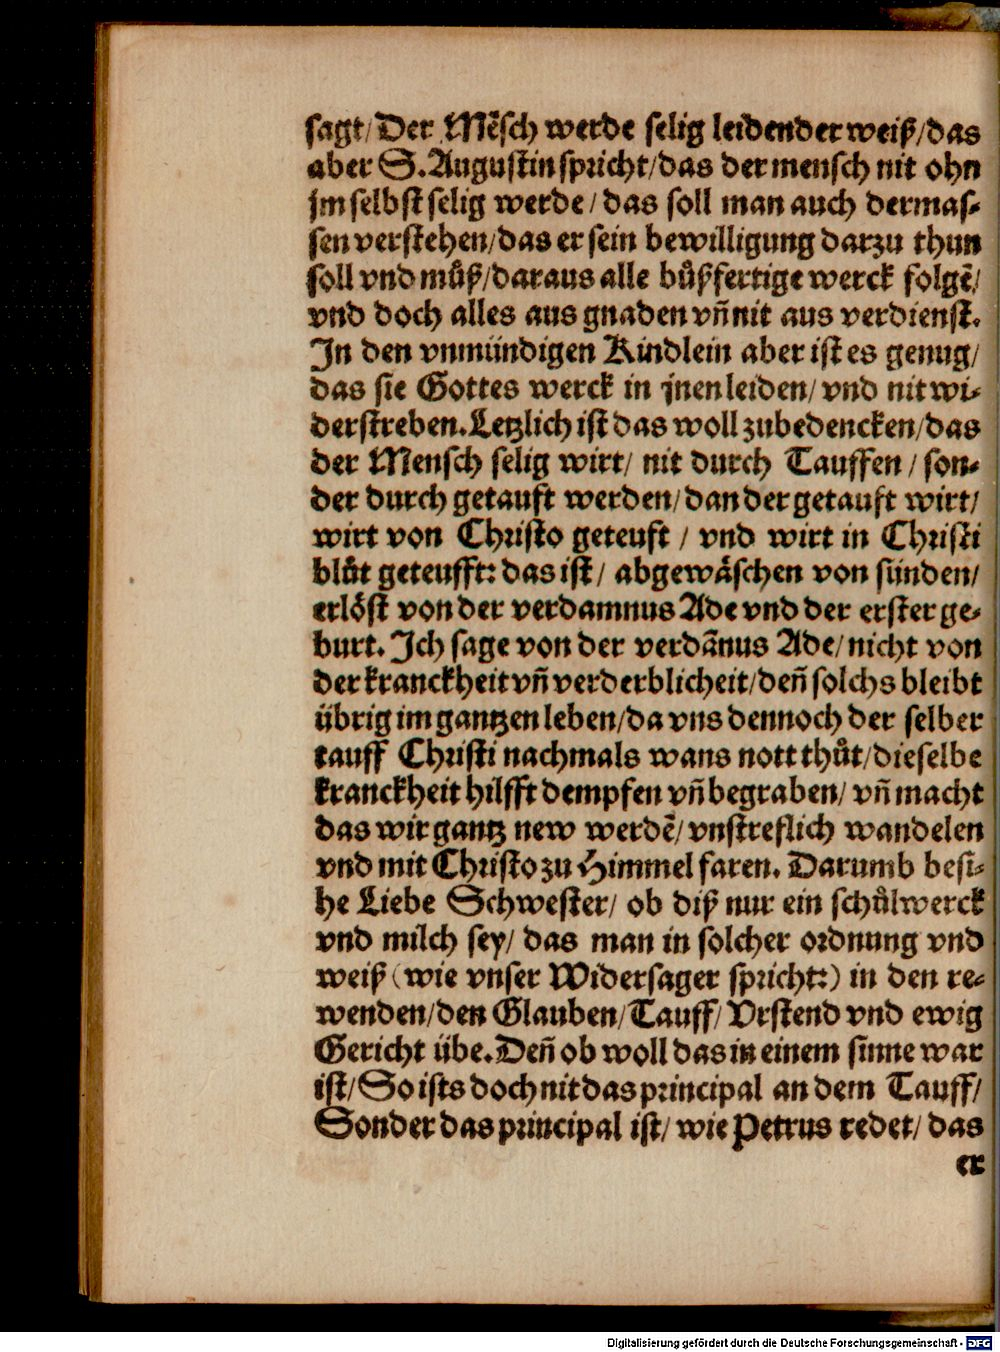 sagt/ Der Mẽsch werde selig leidender weiß/ das
aber S. Augustin spricht/ das der mensch nit ohn
jm selbst selig werde/ das soll man auch dermas-
sen verstehen/ das er sein bewilligung darzu thun
soll vnd můß/ daraus alle bůßfertige werck folgẽ/
vnd doch alles aus gnaden vñ nit aus verdienst.
In den vnmündigen Kindlein aber ist es genug/
das sie Gottes werck in jnen leiden/ vnd nit wi-
derstreben. Letzlich ist das woll zubedencken/ das
der Mensch selig wirt/ nit durch Tauffen/ son-
der durch getauft werden/ dan der getauft wirt/
wirt von Christo geteuft/ vnd wirt in Christi
blůt geteufft: das ist/ abgewäschen von sünden/
erlöst von der verdamnus Ade vnd der erster ge-
burt. Ich sage von der verdãnus Ade/ nicht von
der kranckheit vñ verderblicheit/ deñ solchs bleibt
übrig im gantzen leben/ da vns dennoch der selber
tauff Christi nachmals wans nott thůt/ dieselbe
kranckheit hilfft dempfen vñ begraben/ vñ macht
das wir gantz new werdẽ/ vnstreflich wandelen
vnd mit Christo zu Himmel faren. Darumb besi-
he Liebe Schwester/ ob diß nur ein schůlwerck
vnd milch sey/ das man in solcher ordnung vnd
weiß (wie vnser Widersager spricht:) in den re-
wenden/ den Glauben/ Tauff/ Vrstend vnd ewig
Gericht übe. Deñ ob woll das in einem sinne war
ist/ So ists doch nit das principal an dem Tauff/
Sonder das principal ist/ wie Petrus redet/ das
er
Digitalisierung gefördert durch die Deutsche Forschungsgemeinschaft - DFG